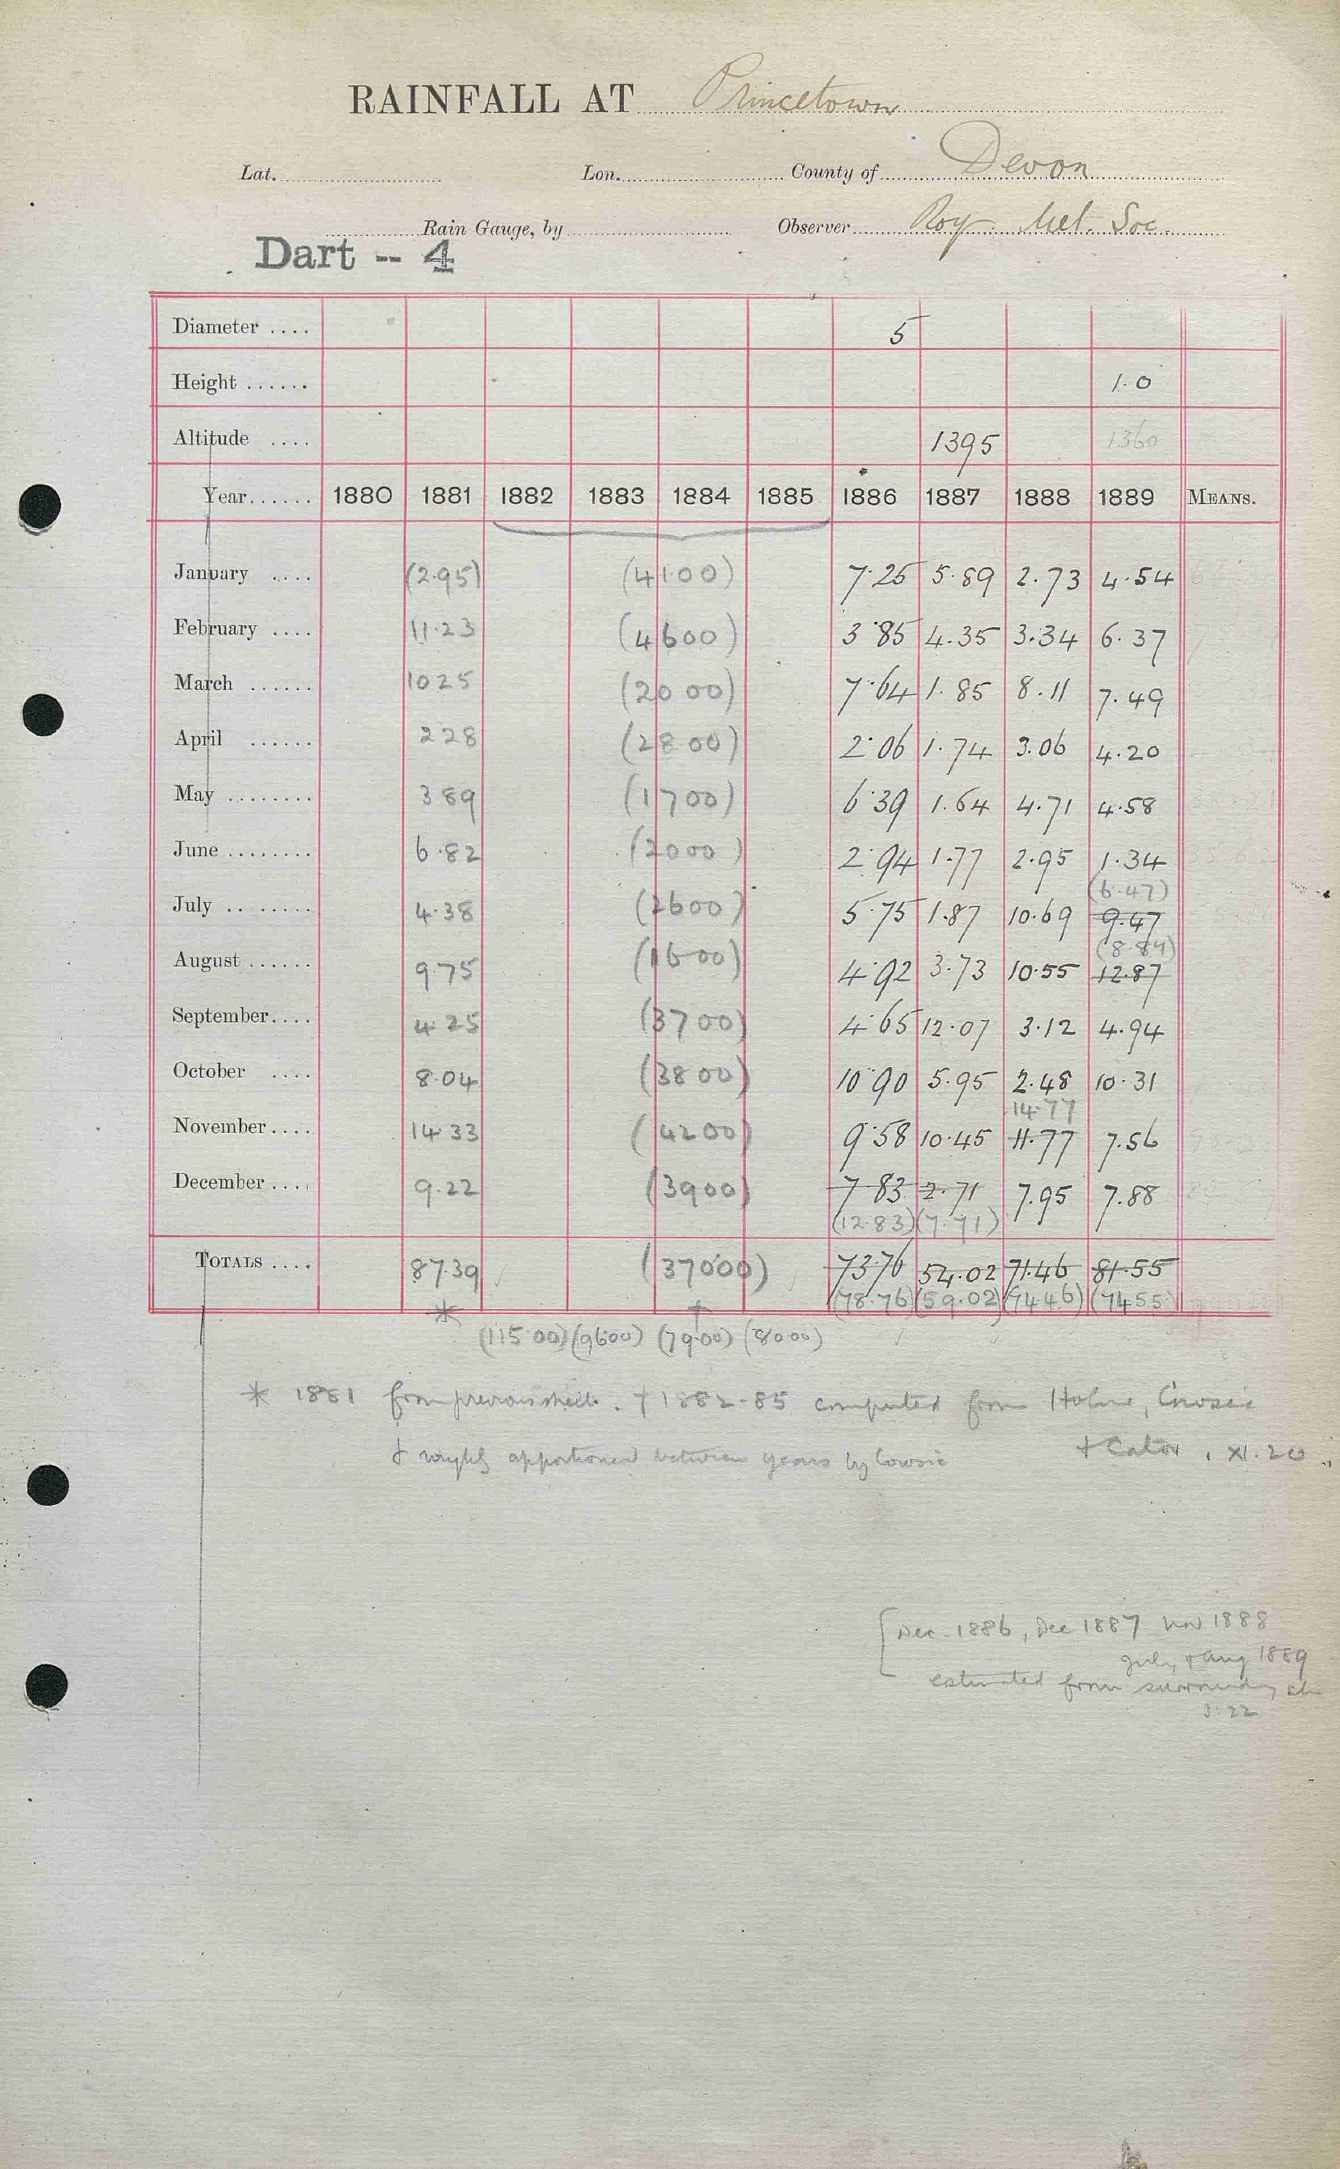 RAINFALL AT Princetown
Lat. Lon. County of Devon
Rain Gauge, by Observer Roy. Met. Soc.
Dart -- 4
Diameter .... 5
Height ...... 1.0
Altitude .... 1395 1360
Year...... 1880 1881 1882 1883 1884 1885 1886 1887 1888 1889 MEANS.
January .... (2.95) (41.00) 7.25 5.89 2.73 4.54
February .... 11.23 (4600) 3.85 4.35 3.34 6.37
March ...... 1025 (20 00) 7.64 1.85 8.11 7.49
April ...... 228 (28 00) 2.06 1.74 3.06 4.20
May ........ 389 (1700) 6.39 1.64 4.71 4.58
June ........ 6.82 (2000) 2.94 1.77 2.95 1.34
(6.47)
July .. ...... 4.38 (2600) 5.75 1.87 10.69 9.47
(8.84)
August ...... 9.75 (1600) 4.92 3.73 10.55 12.87
September.... 4.25 (3700) 4.65 12.07 3.12 4.94
October .... 8.04 (3800) 10.90 5.95 2.48 10.31
14.77
November.... 14.33 (4200) 9.58 10.45 11.77 7.56
December.... 9.22 (3900) 7.83 2.71 7.95 7.88
(12.83) (7.71)
TOTALS .... 87.39 (370.00) 73.76 54.02 71.46 81.55
(78.76) (59.02) (74.46) (74.55)
* †
(115.00) (9600) (79.00) (80.00)
* 1881 from previous sheet. † 1882-85 computed from Holne, Cowsic
& Cator, XI.20
& roughly apportioned between years by Cowsic
Dec. 1886, Dec 1887 Nov 1888
July & Aug 1889
estimated from surrounding
3.22